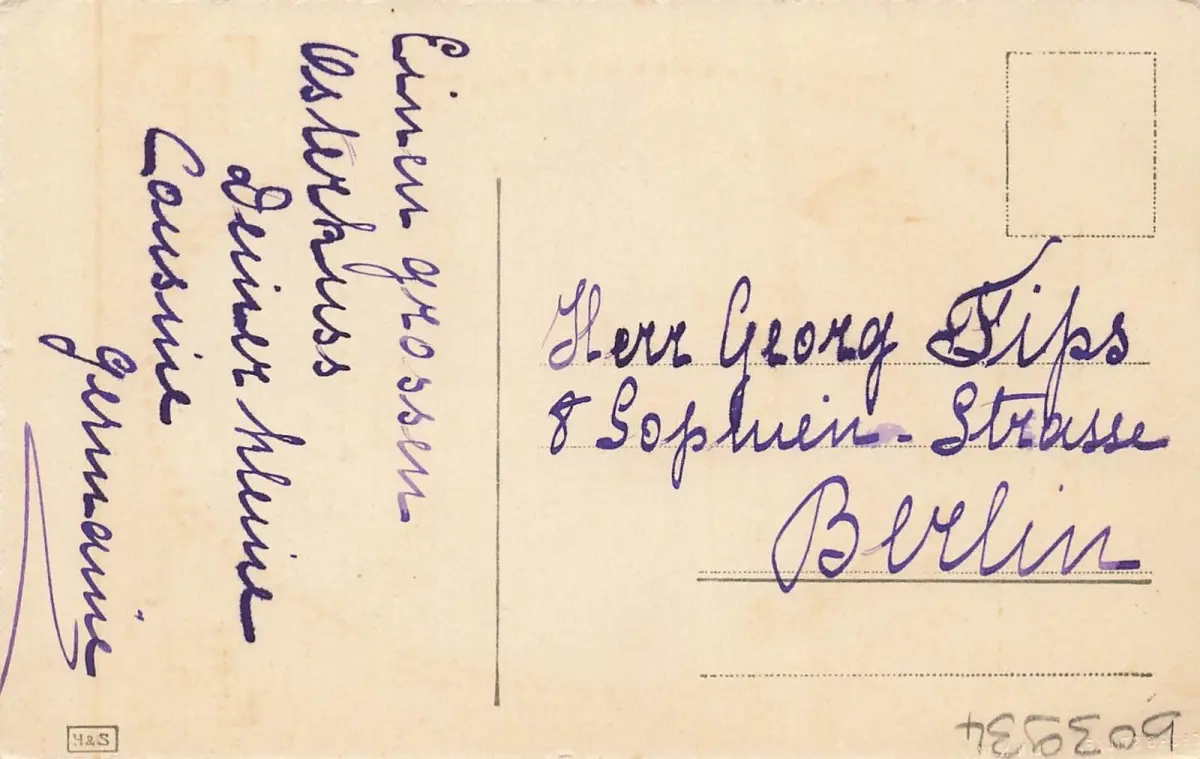 Einen grossen
Osterkuss
Deiner kleine
Cousine
Germaine
Herr Georg Fips
8 Sophien-Strasse
Berlin
H&S